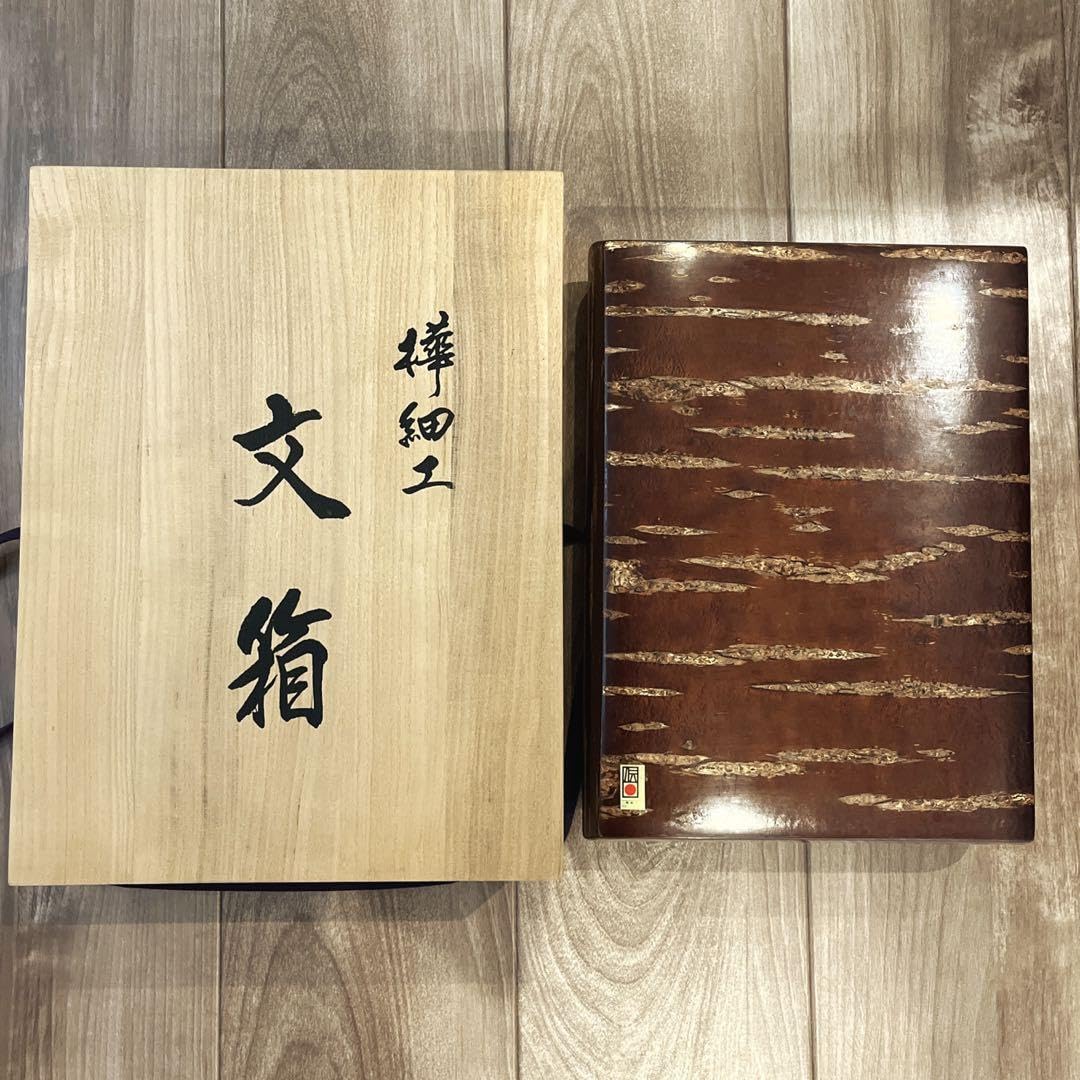 樺細工
文箱
伝